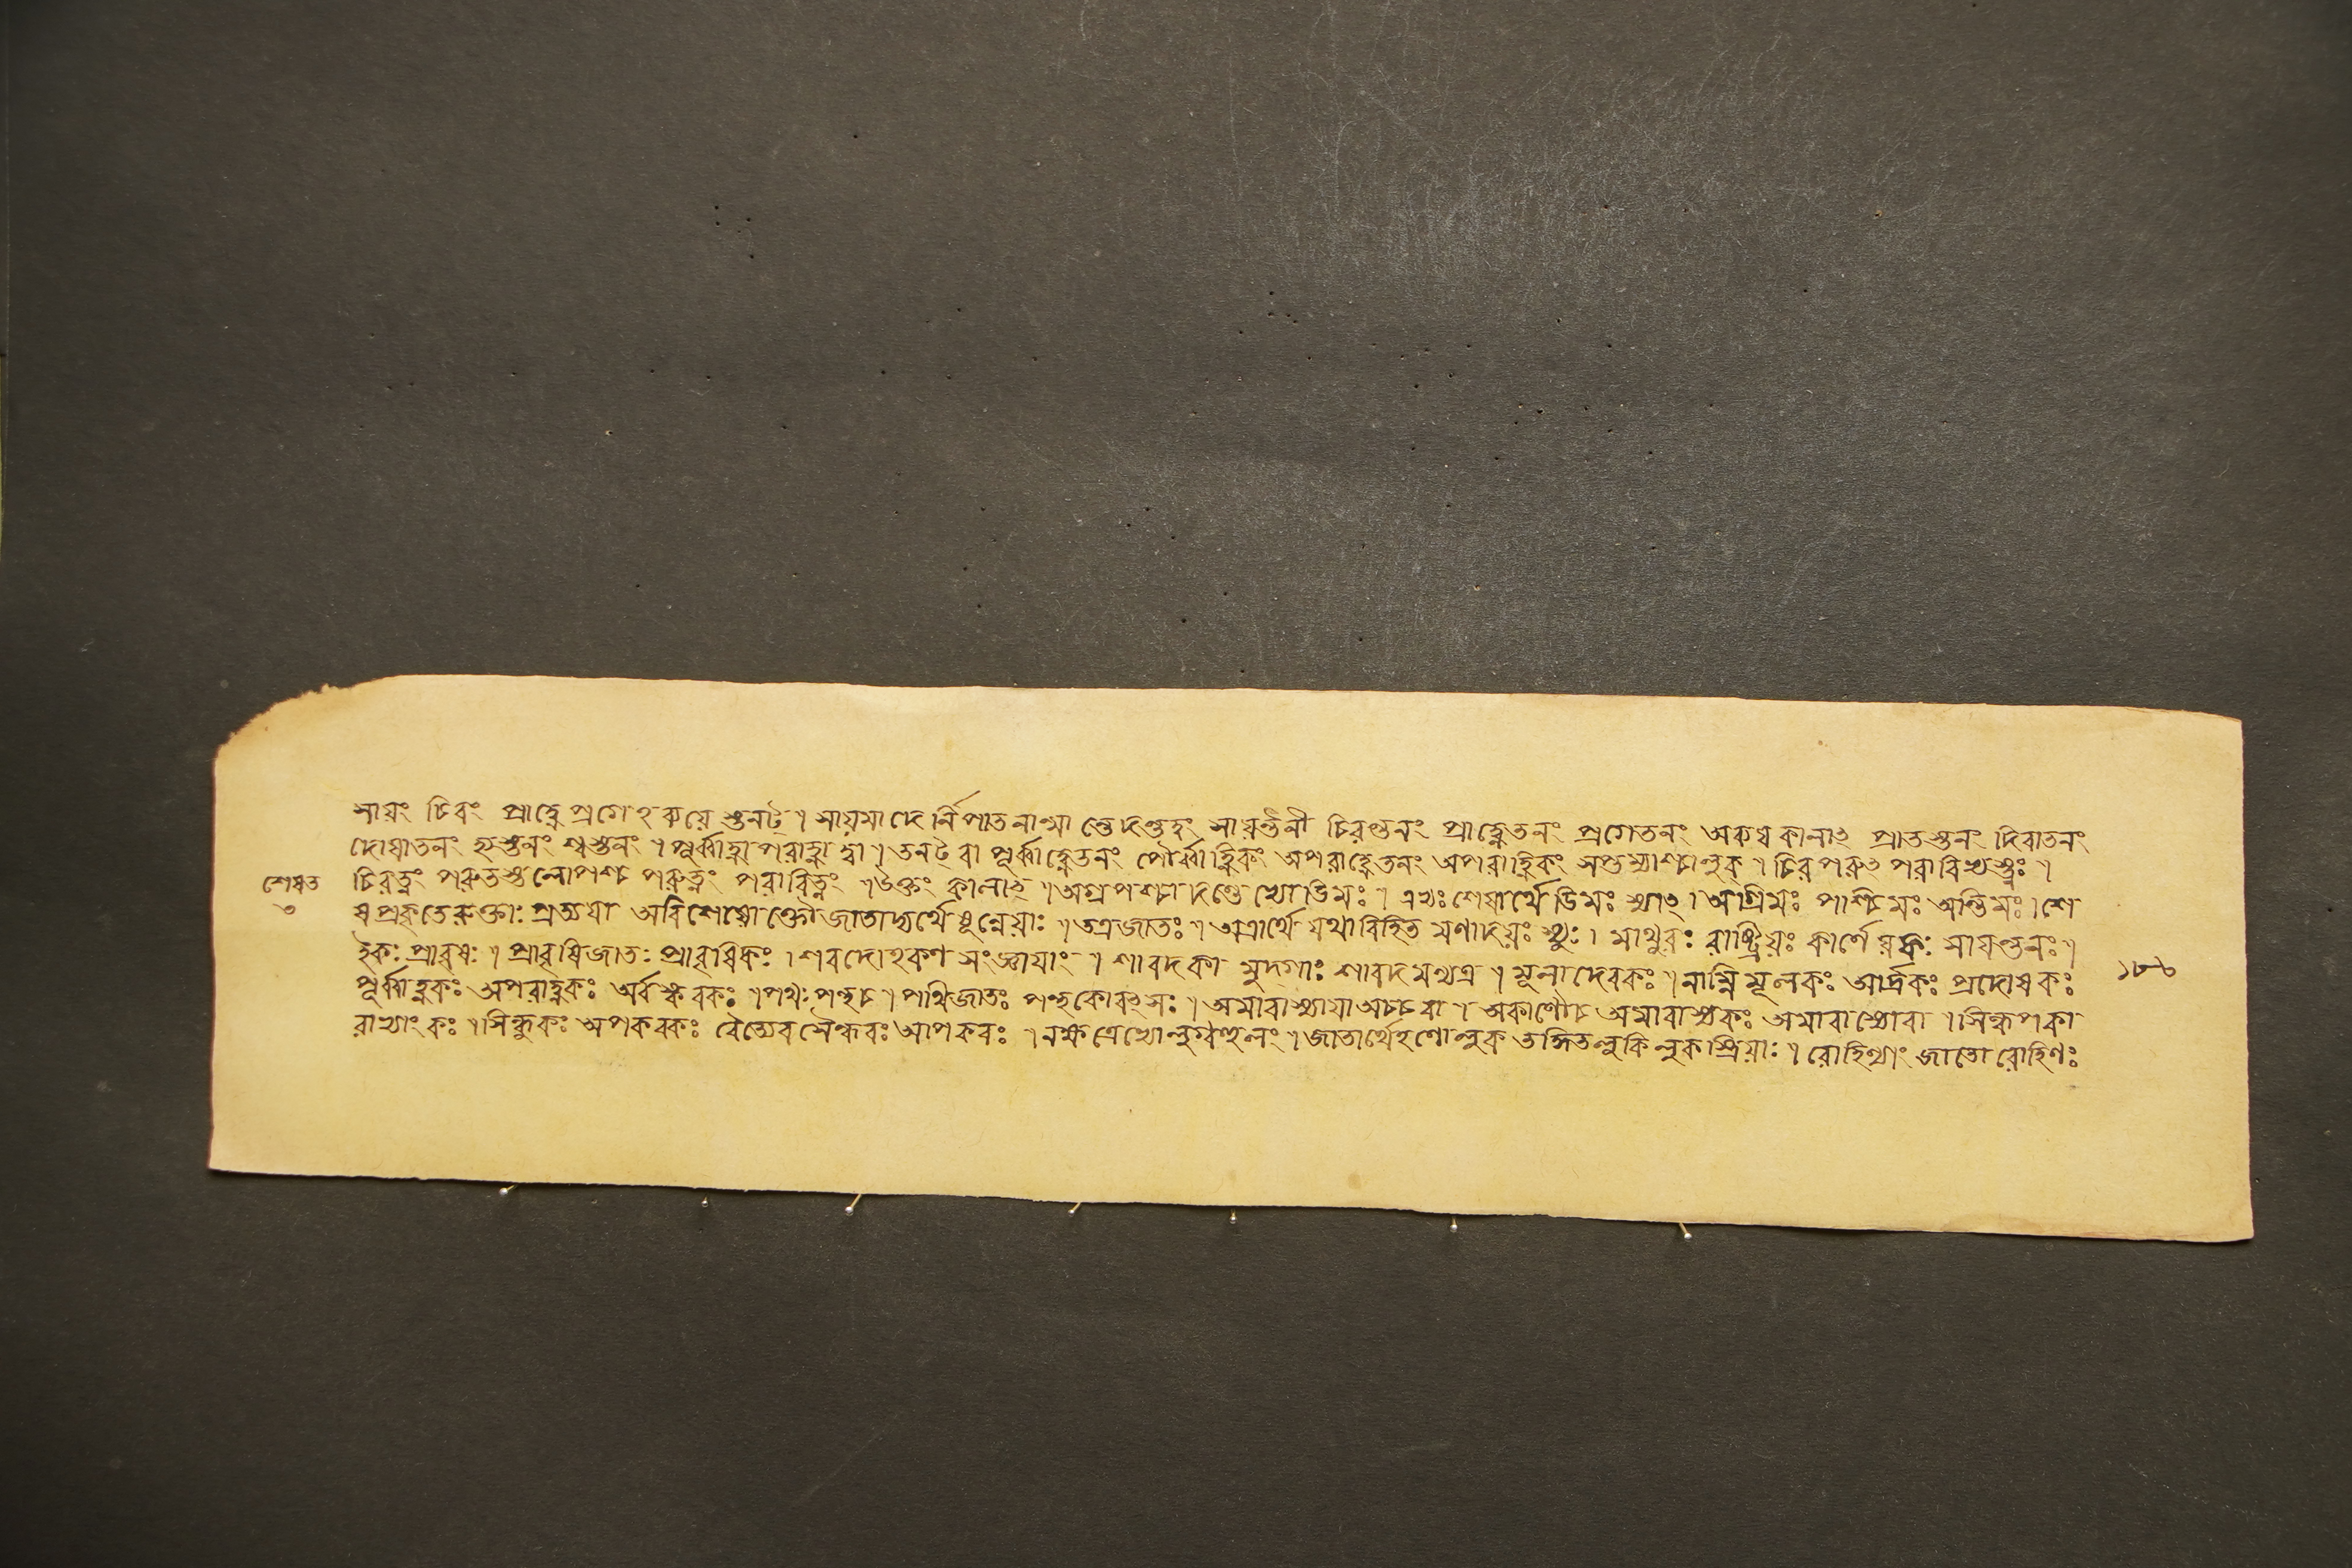 সায়ং চিরং প্রাহ্ণে প্রগেহব্যয়ে স্তনট্ । সায়মাদে র্নিপাতনান্মা ন্তে দন্তত্বং সায়ন্তনী চিরন্তনং প্রাহ্ণেতনং প্রগেতনং অব্যয়কালাৎ প্রাতস্তনং দিবাতনং
দোষাতনং হ্যস্তনং শ্বস্তনং । পূর্ব্বাহ্ণাপরাহ্ণা দ্বা । তনট্ বা পূর্ব্বাহ্ণেতনং পৌর্ব্বাহ্ণিকং অপরাহ্ণেতনং অপরাহ্ণিকং সপ্তম্যাশ্চালুক্ । চিরপরুৎ পরারিভ্যস্ত্নঃ ।
চিরত্নং পরুতস্তলোপশ্চ পরুত্নং পরারিত্নং । উক্তং কালাৎ । অগ্রপশ্চা দন্তে ভ্যো ডিমঃ । এভ্যঃ শেষার্থে ডিমঃ স্যাৎ । অগ্রিমঃ পাশ্চিমঃ অন্তিমঃ । শে
ষপ্রকৃতেরুক্তাঃ প্রত্যয়া অবিশেষোক্তৌ জাতাদ্যর্থে ষূন্নেয়াঃ । তত্রজাতঃ । অত্রার্থে যথাবিহিত মণাদয়ঃ স্যুঃ । মাথুরঃ রাষ্ট্রিয়ঃ কার্ণে য়কঃ সায়ন্তনঃ ।
ইকঃ প্রাবৃষঃ । প্রাবৃষিজাতঃ প্রাবৃষিকঃ । শরদোহকণ সংজ্ঞায়াং । শারদকা মুদ্গাঃ শারদমন্যত্র । মূলাদেরকঃ । নাম্নি মূলকঃ আর্দ্রকঃ প্রদোষকঃ
পূর্ব্বাহ্ণকঃ অপরাহ্ণকঃ অবস্করকঃ । পথঃ পন্থচ । পথিজাতঃ পন্থকোবৎসঃ । অমাবাস্যায়াঅচ্চ বা । অকাণৌচ অমাবাস্যকঃ অমাবাস্যোবা । সিন্ধ্বপকা
রাভ্যাং কঃ । সিন্ধুকঃ অপকরকঃ বৈত্যেব সৈন্ধবঃ আপকরঃ । নক্ষত্রেভ্যোলুগ্বহুলং । জাতার্থেহণোলুক্ তদ্ধিতলুকি লুক স্ত্রিয়াঃ । রোহিণ্যাং জাতো রোহিণঃ
শেষত
৩
১৮৮